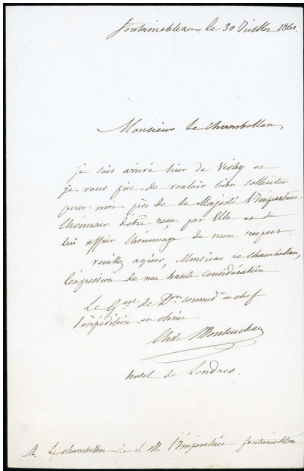 Fontainebleau le 30 Juillet 1860.
Monsieur le chambellan,
je suis arrivé hier de Vichy et
je vous prie de vouloir bien solliciter
pour moi près de Sa Majesté l'Impératrice
l'honneur d'être reçu par Elle et de
lui offrir l'hommage de mon respect.
veuillez agréer, Monsieur le chambellan,
l'expression de ma haute considération
Le Gal de Don command en chef
l'expédition en chine
Montauban
hotel de Londres.
M. Le chambellan de S. M. l'Impératrice fontainebleau